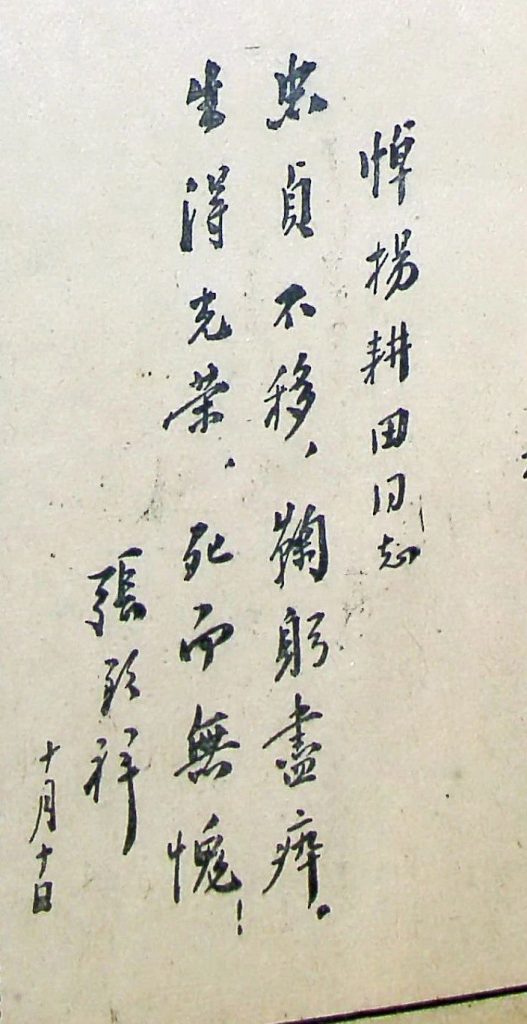 悼揚耕田同志
忠貞不移、鞠躬盡瘁。
生得光荣.死而無愧!
張祥
十月十日